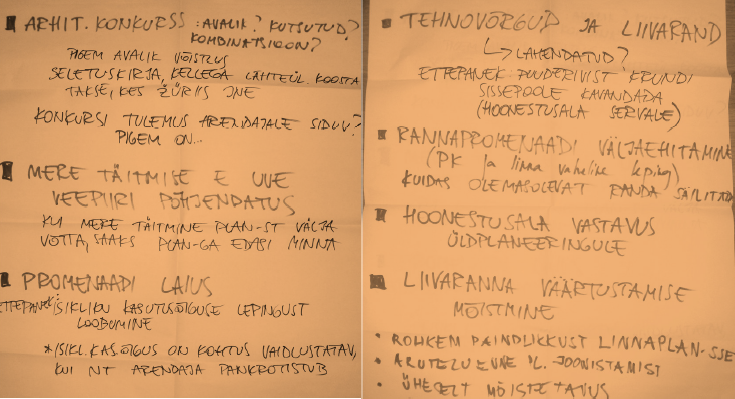 ARHIT. KONKURSS : AVALIK? KUTSUTUD?
KOMBINATSIOON?
PIGEM AVALIK VÕISTLUS
SELETUSKIRJA, KELLEGA LÄHTEÜL. KOOSTA
TAKSE, KES ŽÜRIIS JNE
KONKURSI TULEMUS ARENDAJALE SIDUV?
PIGEM ON...
MERE TÄITMISE E UUE
VEEPIIRI PÕHJENDATUS
KUI MERE TÄITMINE PLAN-ST VÄLJA
VÕTTA, SAAKS PLAN-GA EDASI MINNA
PROMENAADI LAIUS
ETTEPANEK: ISIKLIKU KASUTUSÕIGUSE LEPINGUST
LOOBUMINE
* ISIKL. KAS. ÕIGUS ON KOHTUS VAIDLUSTATAV,
KUI NT ARENDAJA PANKROTISTUB
TEHNOVÕRGUD JA LIIVARAND
LAHENDATUD?
ETTEPANEK: PUURDERIVIST KRUNDI
SISSEPOOLE KAVANDADA
(HOONESTUSALA SERVALE)
RANNAPROMENAADI VÄLJAEHITAMINE
(PK ja linna vaheline leping)
KUIDAS OLEMASOLEVAT RANDA SÄILITADA
HOONESTUSALA VASTAVUS
ÜLDPLANEERINGULE
LIIVARANNA VÄÄRTUSTAMISE
MÕISTMINE
• ROHKEM PAINDLIKKUST LINNAPLAN-SSE
• ARUTELU ENNE JOONISTAMIST
• ÜHESELT MÕISTETAVUS